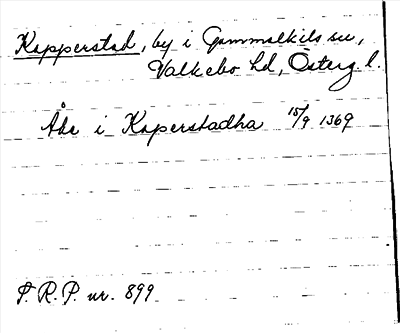 Kapperstad, by i Gammalkils sn,
Valkebo hd, Österg. l.
Åke i Kaperstadha 15/9 1369
S.R.P. nr. 899